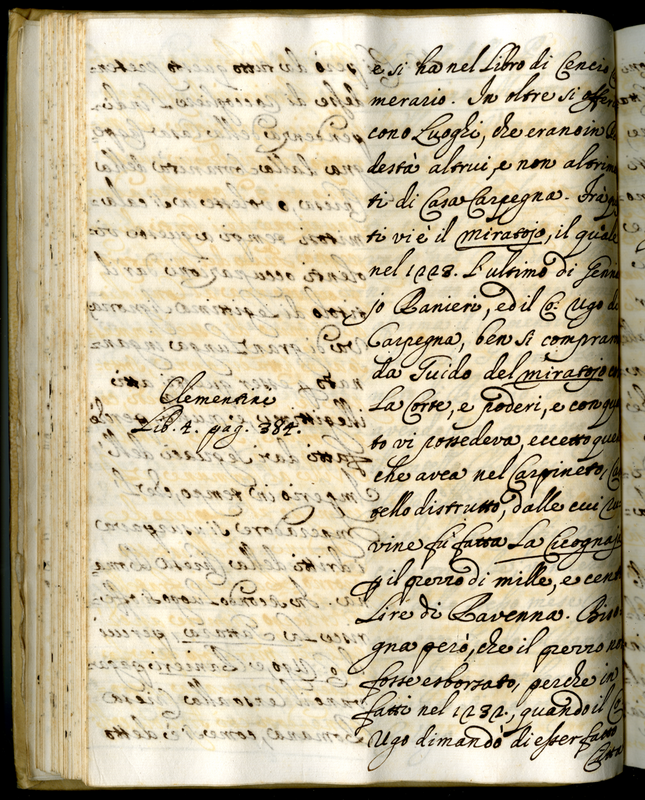 e si ha nel Libro di Cencio
merario. In oltre si offeri
cono Luoghi, che erano in
destà altrui, e non altrime
ti di Casa Carpegna. Frà
ti vi è il miratojo, il quale
nel 1228. L'ultimo di Genna
jo Ranieri, ed il Co: Ugo di
Carpegna, ben si compraro
da Guido del miratojo con
La Corte, e poderi, e con qua
to vi possedeva, eccetto quel
che avea nel Carpineto, Ca
tello distrutto, dalle cui ru
vine fù fatta La Cicognaja
p il prezzo di mille, e cento
Lire di Ravenna. Biso
gna però, che il prezzo non
fosse esborsato, perche in
fatti nel 1232, quando il Co
Ugo dimandò di esser fatto
Citta
Clementine
Lib. 4. pag. 384.